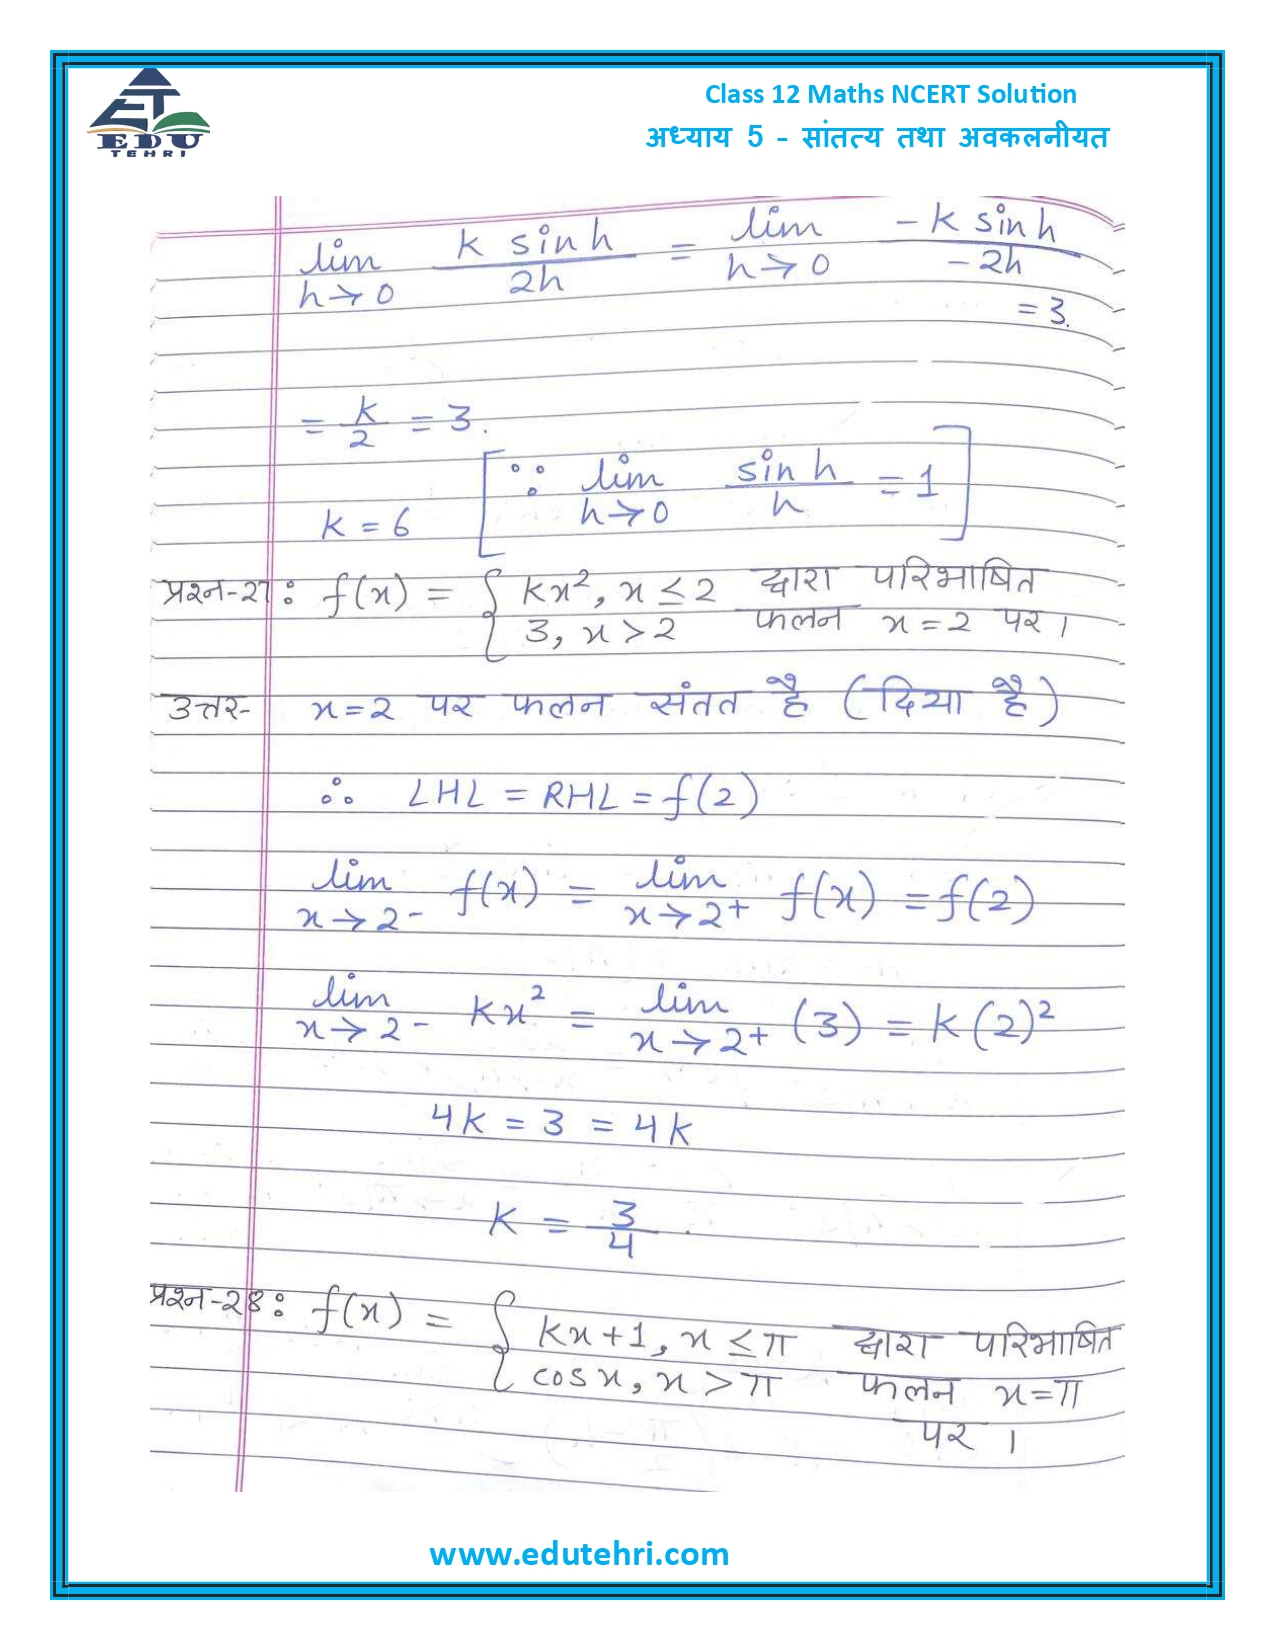 EDU
TEHRI
Class 12 Maths NCERT Solution
अध्याय 5 - सांतत्य तथा अवकलनीयत
lim h→0 k sinh / 2h = lim h→0 -k sinh / -2h
= 3.
= k/2 = 3.
k = 6 [∵ lim h→0 sinh / h = 1]
प्रश्न-27: f(x) = { kx², x ≤ 2 द्वारा परिभाषित
3, x > 2 फलन x = 2 पर ।
उत्तर- x = 2 पर फलन संतत है (दिया है)
∴ LHL = RHL = f(2)
lim x→2- f(x) = lim x→2+ f(x) = f(2)
lim x→2- kx² = lim x→2+ (3) = k(2)²
4k = 3 = 4k
k = 3/4 .
प्रश्न-28: f(x) = { kx+1, x ≤ π द्वारा परिभाषित
cos x, x > π फलन x = π
पर ।
www.edutehri.com